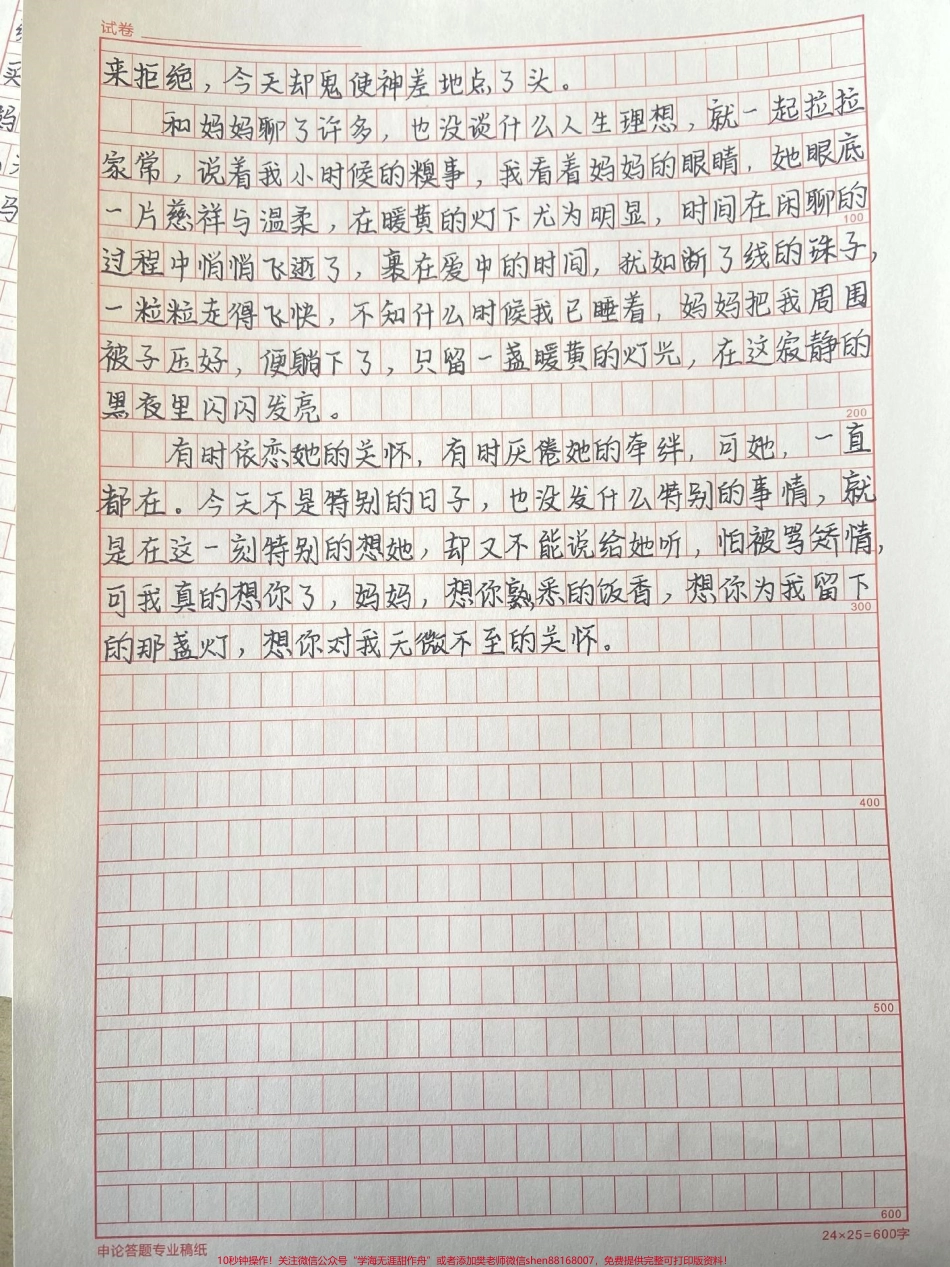 试卷
来拒绝，今天却鬼使神差地点了头。
和妈妈聊了许多，也没谈什么人生理想，就一起拉拉
家常，说着我小时候的糗事，我看着妈妈的眼睛，她眼底
一片慈祥与温柔，在暖黄的灯下尤为明显，时间在闲聊的
100
过程中悄悄飞逝了，裹在爱中的时间，犹如断了线的珠子，
一粒粒走得飞快，不知什么时候我已睡着，妈妈把我周围
被子压好，便躺下了，只留一盏暖黄的灯光，在这寂静的
黑夜里闪闪发亮。
200
有时依恋她的关怀，有时厌倦她的牵绊，可她，一直
都在。今天不是特别的日子，也没发什么特别的事情，就
是在这一刻特别的想她，却又不能说给她听，怕被骂矫情，
可我真的想你了，妈妈，想你熟悉的饭香，想你为我留下
300
的那盏灯，想你对我无微不至的关怀。
400
500
600
申论答题专业稿纸
24×25=600字
10秒钟操作！关注微信公众号“学海无涯甜作舟”或者添加樊老师微信shen88168007，免费提供完整可打印版资料！